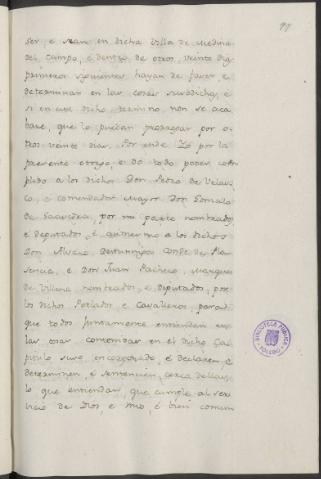 97
ser, e sean en dicha villa de Medina
del Campo, e dentro de otros veinte dias
primeros siguientes hayan de facer e
determinar en las cosas susodichas, e
si en este dicho termino, non se aca
bare, que lo puedan prorogar por o-
tros veinte dias. Por ende Yo por la
presente otorgo, e do todo poder com
plido a los dichos Don Pedro de Velas
co, e comendador mayor Don Gonzalo
de Saavedra, por mi parte nombrados,
e deputados, e asimesmo a los dichos
Don Alvaro Destuñiga Conde de Pla
sencia, e Don Juan Pacheco, Marques
de Villena nombrados, e deputados, por
los dichos Perlados e Cavalleros, para
que todos juntamente entiendan en
las cosas contenidas en el dicho Ca
pitulo suso encorporado, e declaren, e
determinen, e sentencien, cerca dellas,
lo que entiendan que cumple al ser
vicio de Dios e mio, e bien comun
BIBLIOTECA PUBLICA
TOLEDO